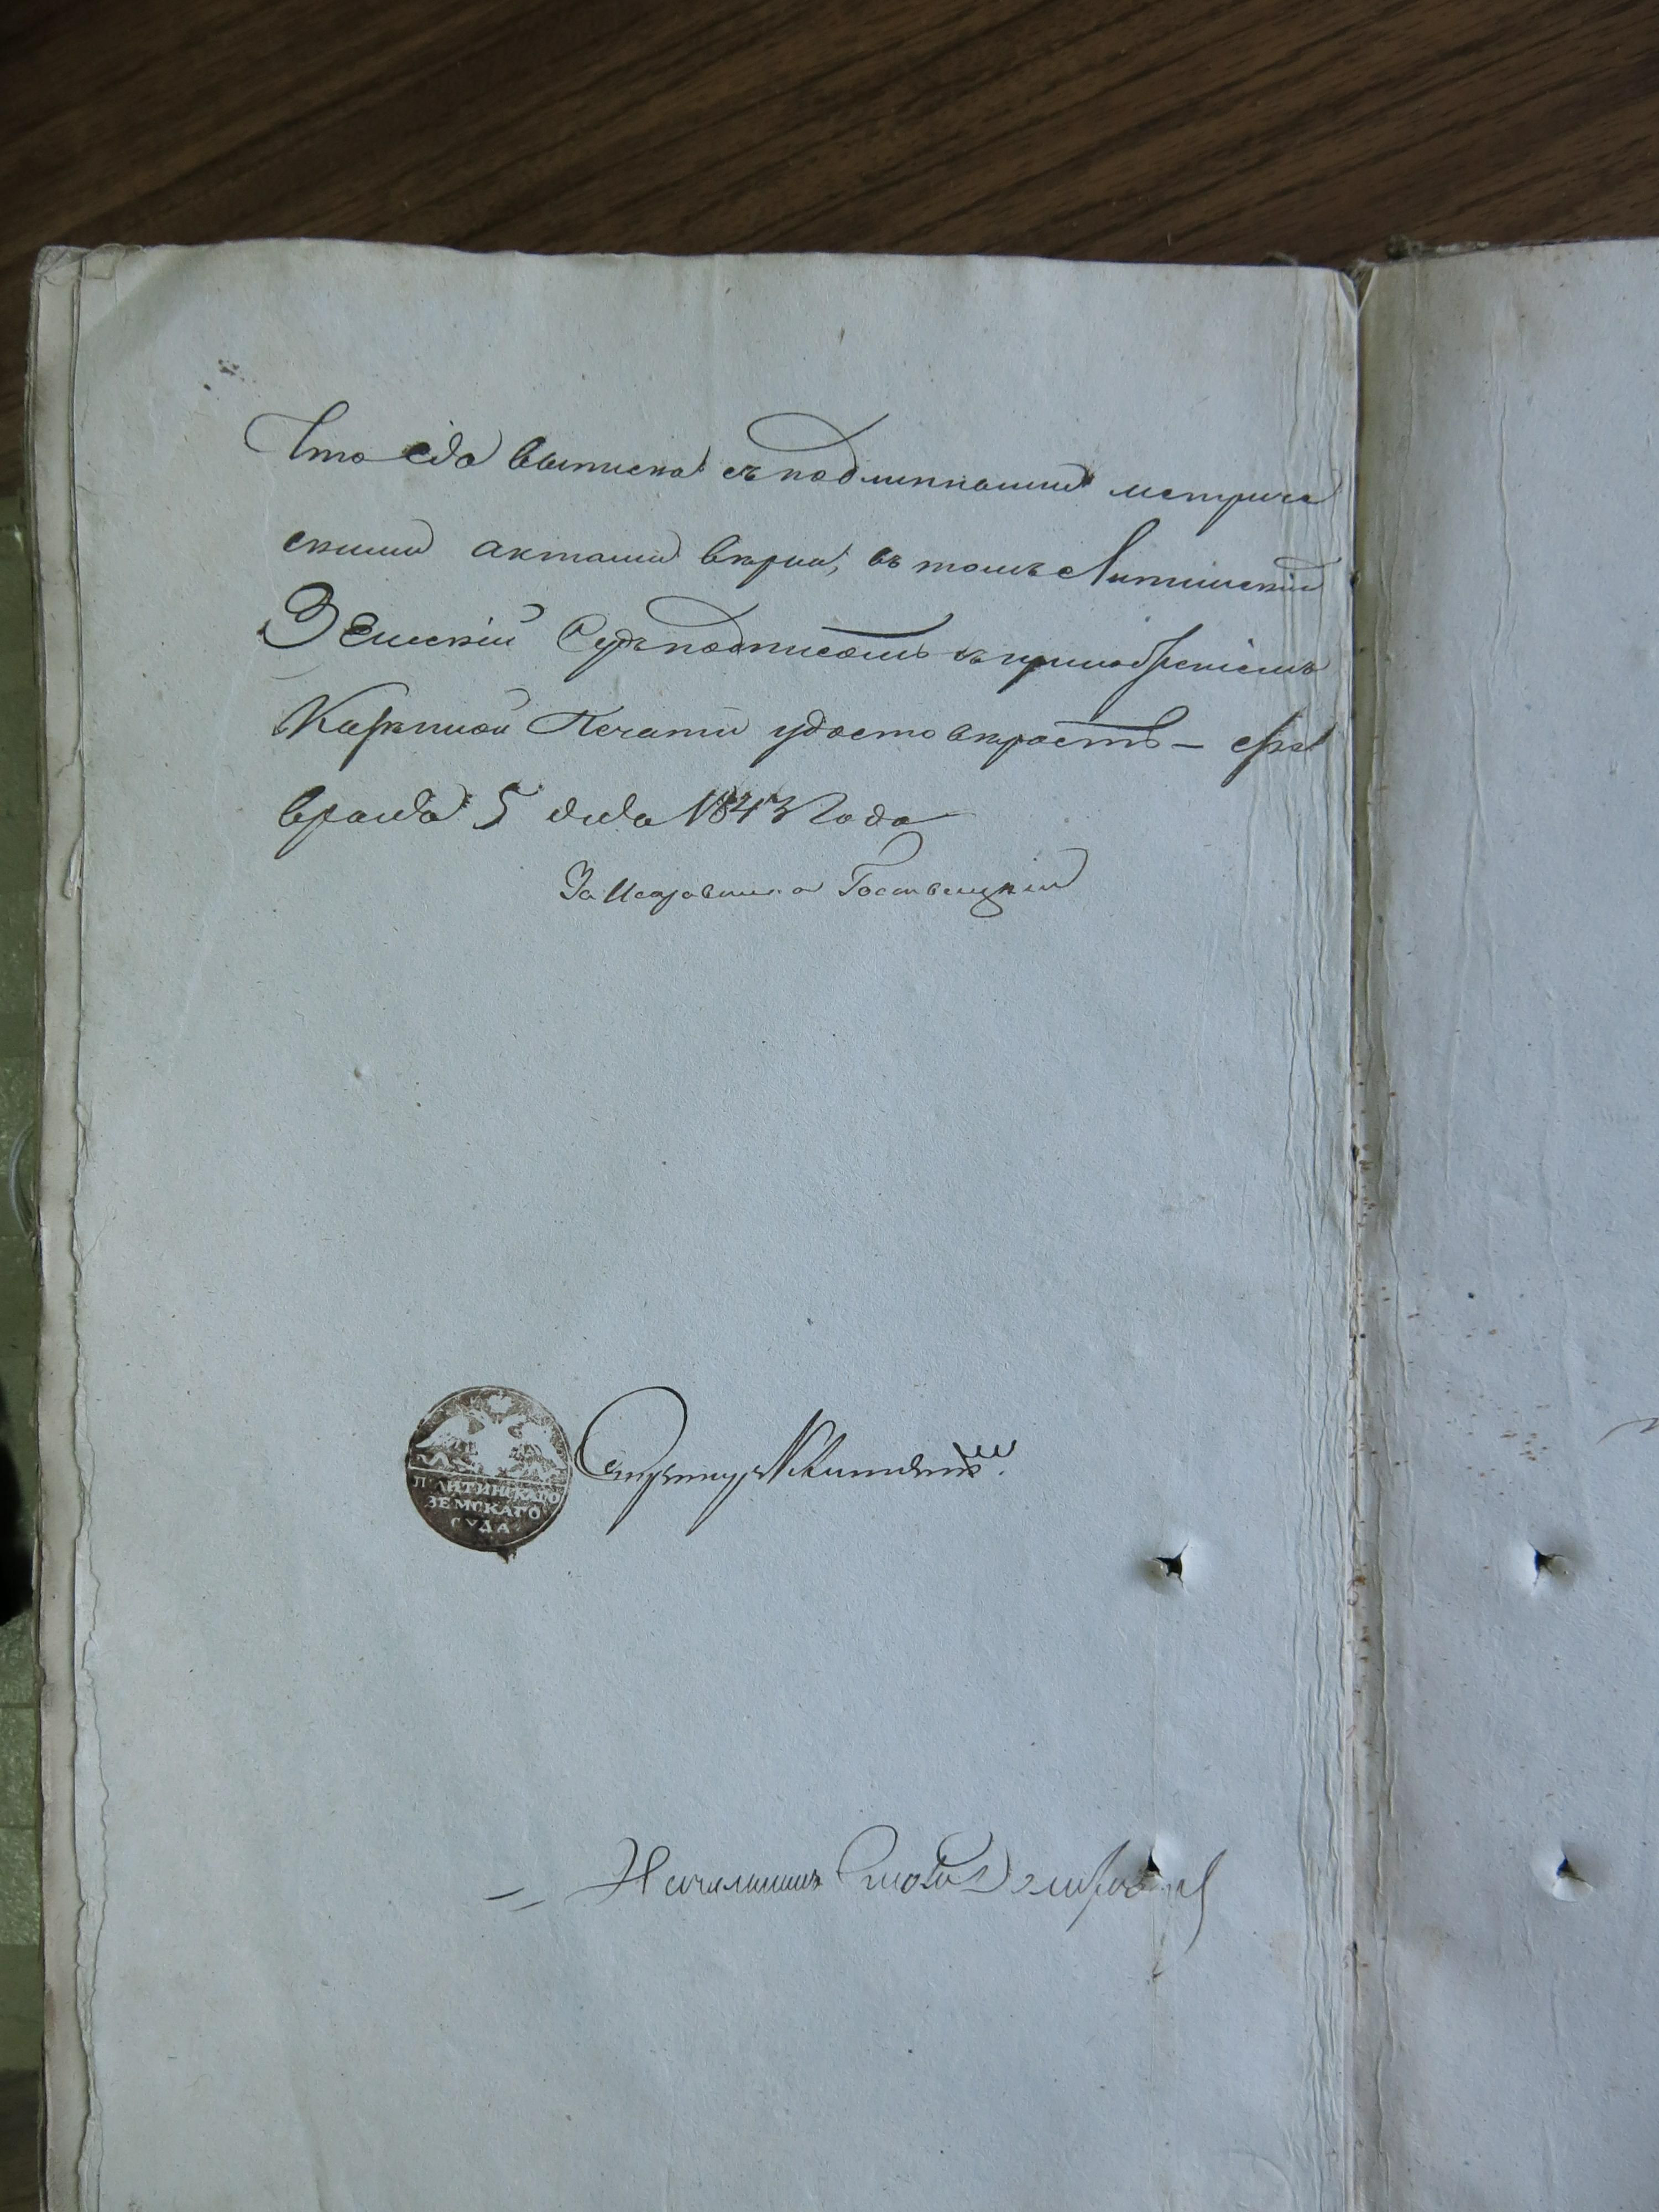 Что сія выписка съ подлинными метриче
скими актами вѣрна, въ томъ Литинскій
Земскій Судъ подписомъ съ приложеніемъ
Казенной Печати удостовѣряетъ – фе
враля 5 дня 1843 года
За Исправника
ЛИТИНСКАГО
ЗЕМСКАГО
СУДА
Секретарь
Начальникъ Стола